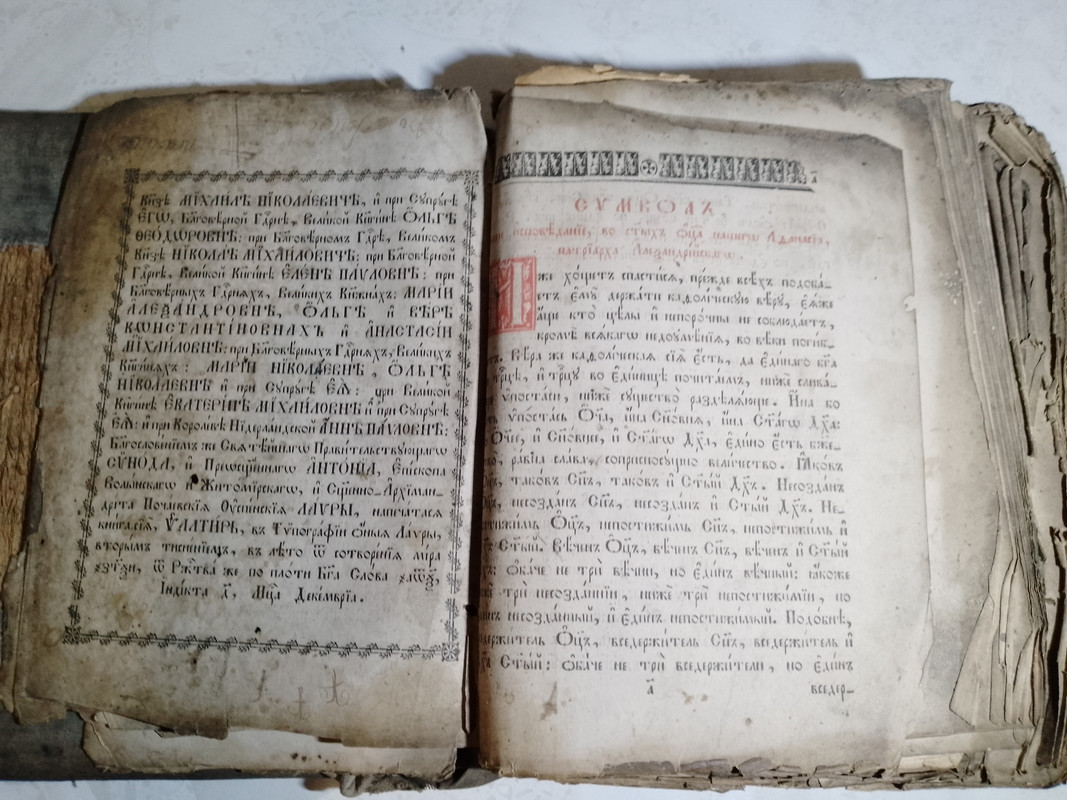 Кн҃зѣ МІХАИЛѢ НІКОЛАЕВИЧѢ, и҆ при Сꙋпрꙋгѣ
ЕГѠ, Бл҃говѣрной Гдⷭ҇рнѣ, Великой Кнг҃инѣ ОЛЬГѢ
ѲЕОДѠРОВНѢ: при Бл҃говѣрномъ Гдⷭ҇рѣ, Великомъ
Кн҃зѣ НІКОЛАѢ МІХАИЛОВИЧѢ: при Бл҃говѣрной
Гдⷭ҇рнѣ, Великой Кнг҃инѣ ЕЛЕНѢ ПАVЛОВНѢ: при
Бл҃говѣрныхъ Гдⷭ҇рняхъ, Великихъ Кн҃жнахъ: МАРІИ
АЛЕѮАНДРОВНѢ, ОЛЬГѢ и҆ ВѢРѢ
КѠНСТАНТІНОВНАХЪ и҆ АНАСТАСІИ
МІХАИЛОВНѢ: при Бл҃говѣрныхъ Гдⷭ҇рняхъ, Великихъ
Кнг҃иняхъ: МАРІИ НІКОЛАЕВНѢ, ОЛЬГѢ
НІКОЛАЕВНѢ и҆ при Сꙋпрꙋгѣ ЕѦ: при Великой
Кнг҃инѣ ЕКАТЕРИНѢ МІХАИЛОВНѢ и҆ при Сꙋпрꙋгѣ
ЕѦ: и҆ при Королевѣ Нідерландской АННѢ ПАVЛОВНѢ:
Бл҃гословеніемъ же Свѧтѣйшагѡ Правительствꙋющагѡ
СѴНОДА, и҆ Преѡсщ҃еннагѡ АНТОНІА, Епⷭ҇копа
Волынскагѡ и҆ Житомірскагѡ, и҆ Сщ҃енно-Архіман-
дріта Почаевскіѧ Оуспенскіѧ ЛАVРЫ, напечатасѧ
книга сіѧ, ѰАЛТИРЬ, въ Тѵпографіи ѻныѧ Лаѵры,
вторымъ тисненіемъ, въ лѣто ѿ сотворенїѧ міра
҂зтѯи, ѿ Ржⷭ҇тва же по плоти Бг҃а Слова ҂аѿѯ,
Індікта г҃, Мцⷭ҇а Декемврїа.
СѴМВОЛЪ
исповѣданіи, во ст҃ыхъ ѻц҃а нашегѡ Аѳанасіа,
патріарха Алеѯандрійскагѡ.
Иже хощетъ спастисѧ, прежде всѣхъ подоба-
етъ емꙋ держати каѳолическꙋю вѣрꙋ, еѧже
аще кто цѣлы и҆ непорочны не соблюдаетъ,
кромѣ всѧкагѡ недоꙋмѣніѧ, во вѣки погиб-
Вѣра же каѳолическаѧ сіѧ есть, да единаго бг҃а
трⷪ҇цѣ, и҆ трⷪ҇цꙋ во единицѣ почитаемъ, ниже слива-
ѵпостаси, ниже сꙋщество раздѣлѧюще. Ина бо
ѵпостась Ѻц҃а, ина Сн҃овнѧ, ина Ст҃агѡ Дх҃а:
Ѻч҃ее, и҆ Сн҃овнее, и҆ Ст҃агѡ Дх҃а, едино есть бж҃е-
равна слава, соприсносꙋщно величество. Іаковъ
таковъ Сн҃ъ, таковъ и҆ Ст҃ый Дх҃ъ. Несозданъ
несозданъ Сн҃ъ, несозданъ и҆ Ст҃ый Дх҃ъ. Не-
Ѻц҃ъ, непостижимь Сн҃ъ, непостижимь и҆
Ст҃ый. Вѣченъ Ѻц҃ъ, вѣченъ Сн҃ъ, вѣченъ и҆ Ст҃ый
ѻбаче не три вѣчни, но единъ вѣчный: ꙗкоже
три несозданніи, ниже три непостижиміи, но
несозданный, и҆ единъ непостижимый. Подобнѣ,
Ѻц҃ъ, вседержитель Сн҃ъ, вседержитель и҆
Ст҃ый: ѻбаче не три вседержители, но единъ
а҃
вседер-